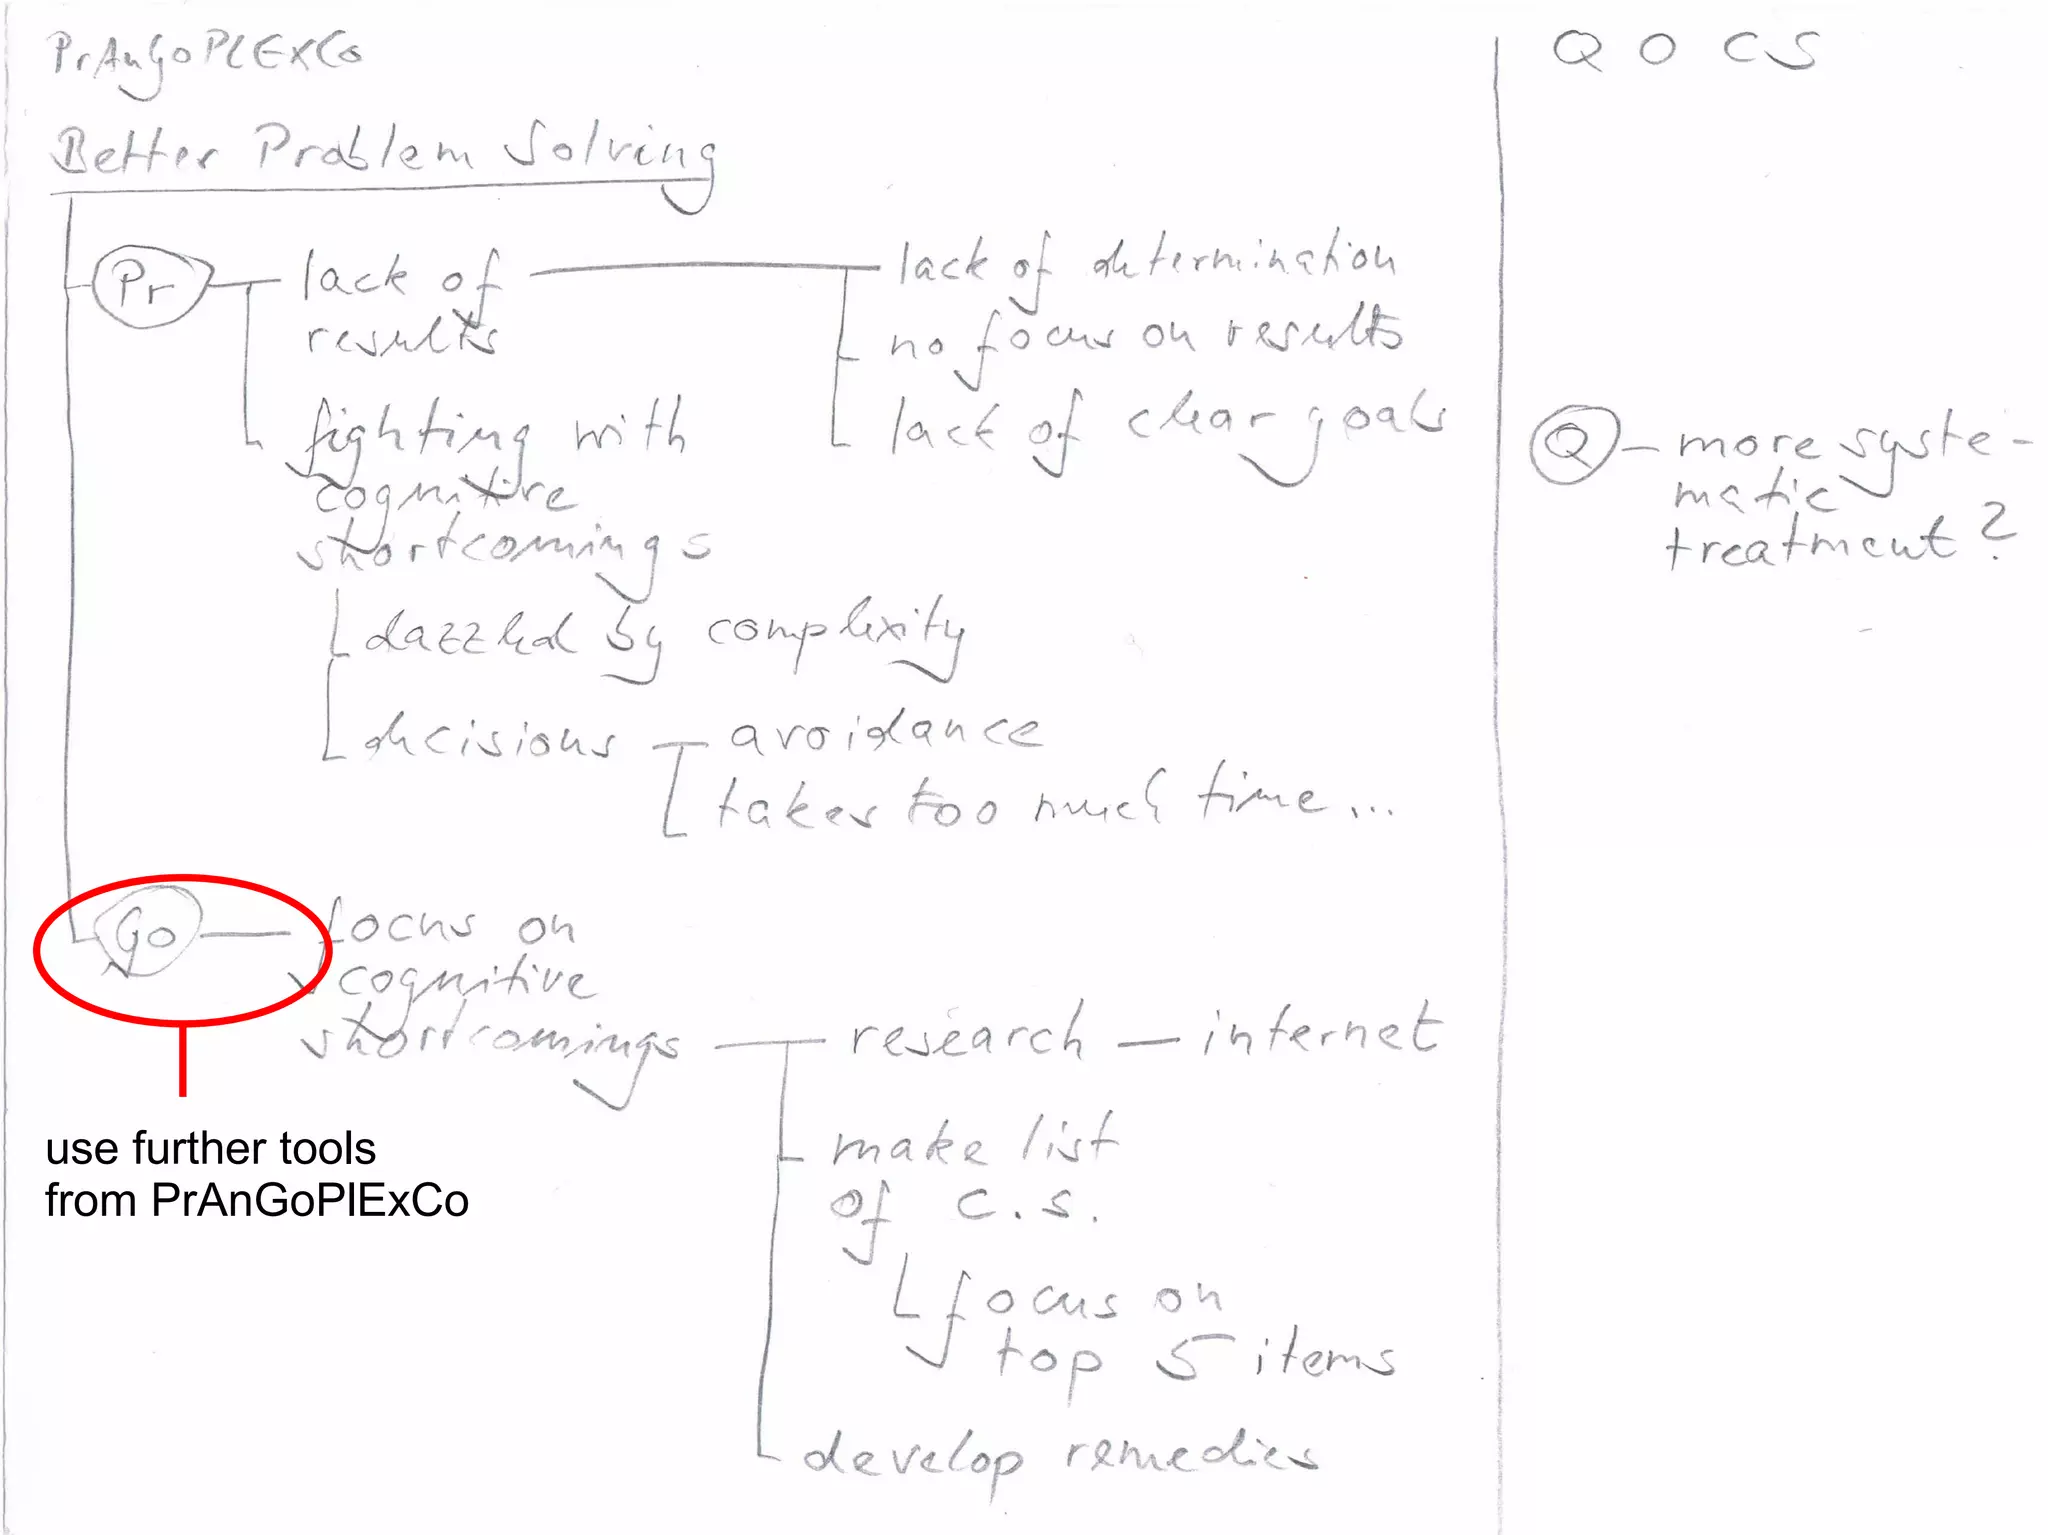 PrAnGoPlExCo
Q O C S
Better Problem Solving
Pr
lack of
results
lack of determination
no focus on results
lack of clear goals
fighting with
cognitive
shortcomings
dazzled by complexity
decisions
avoidance
takes too much time...
Q
more syste-
matic
treatment?
Go
focus on
cognitive
shortcomings
research — internet
make list
of c.s.
focus on
top 5 items
develop remedies
use further tools
from PrAnGoPlExCo